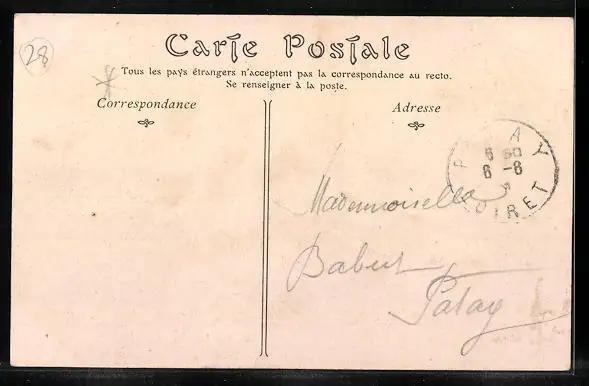 28
Carte Postale
Tous les pays étrangers n'acceptent pas la correspondance au recto.
Se renseigner à la poste.
Correspondance
Adresse
PATAY
6 30
6 -6
LOIRET
Mademoiselle
Babut
Patay